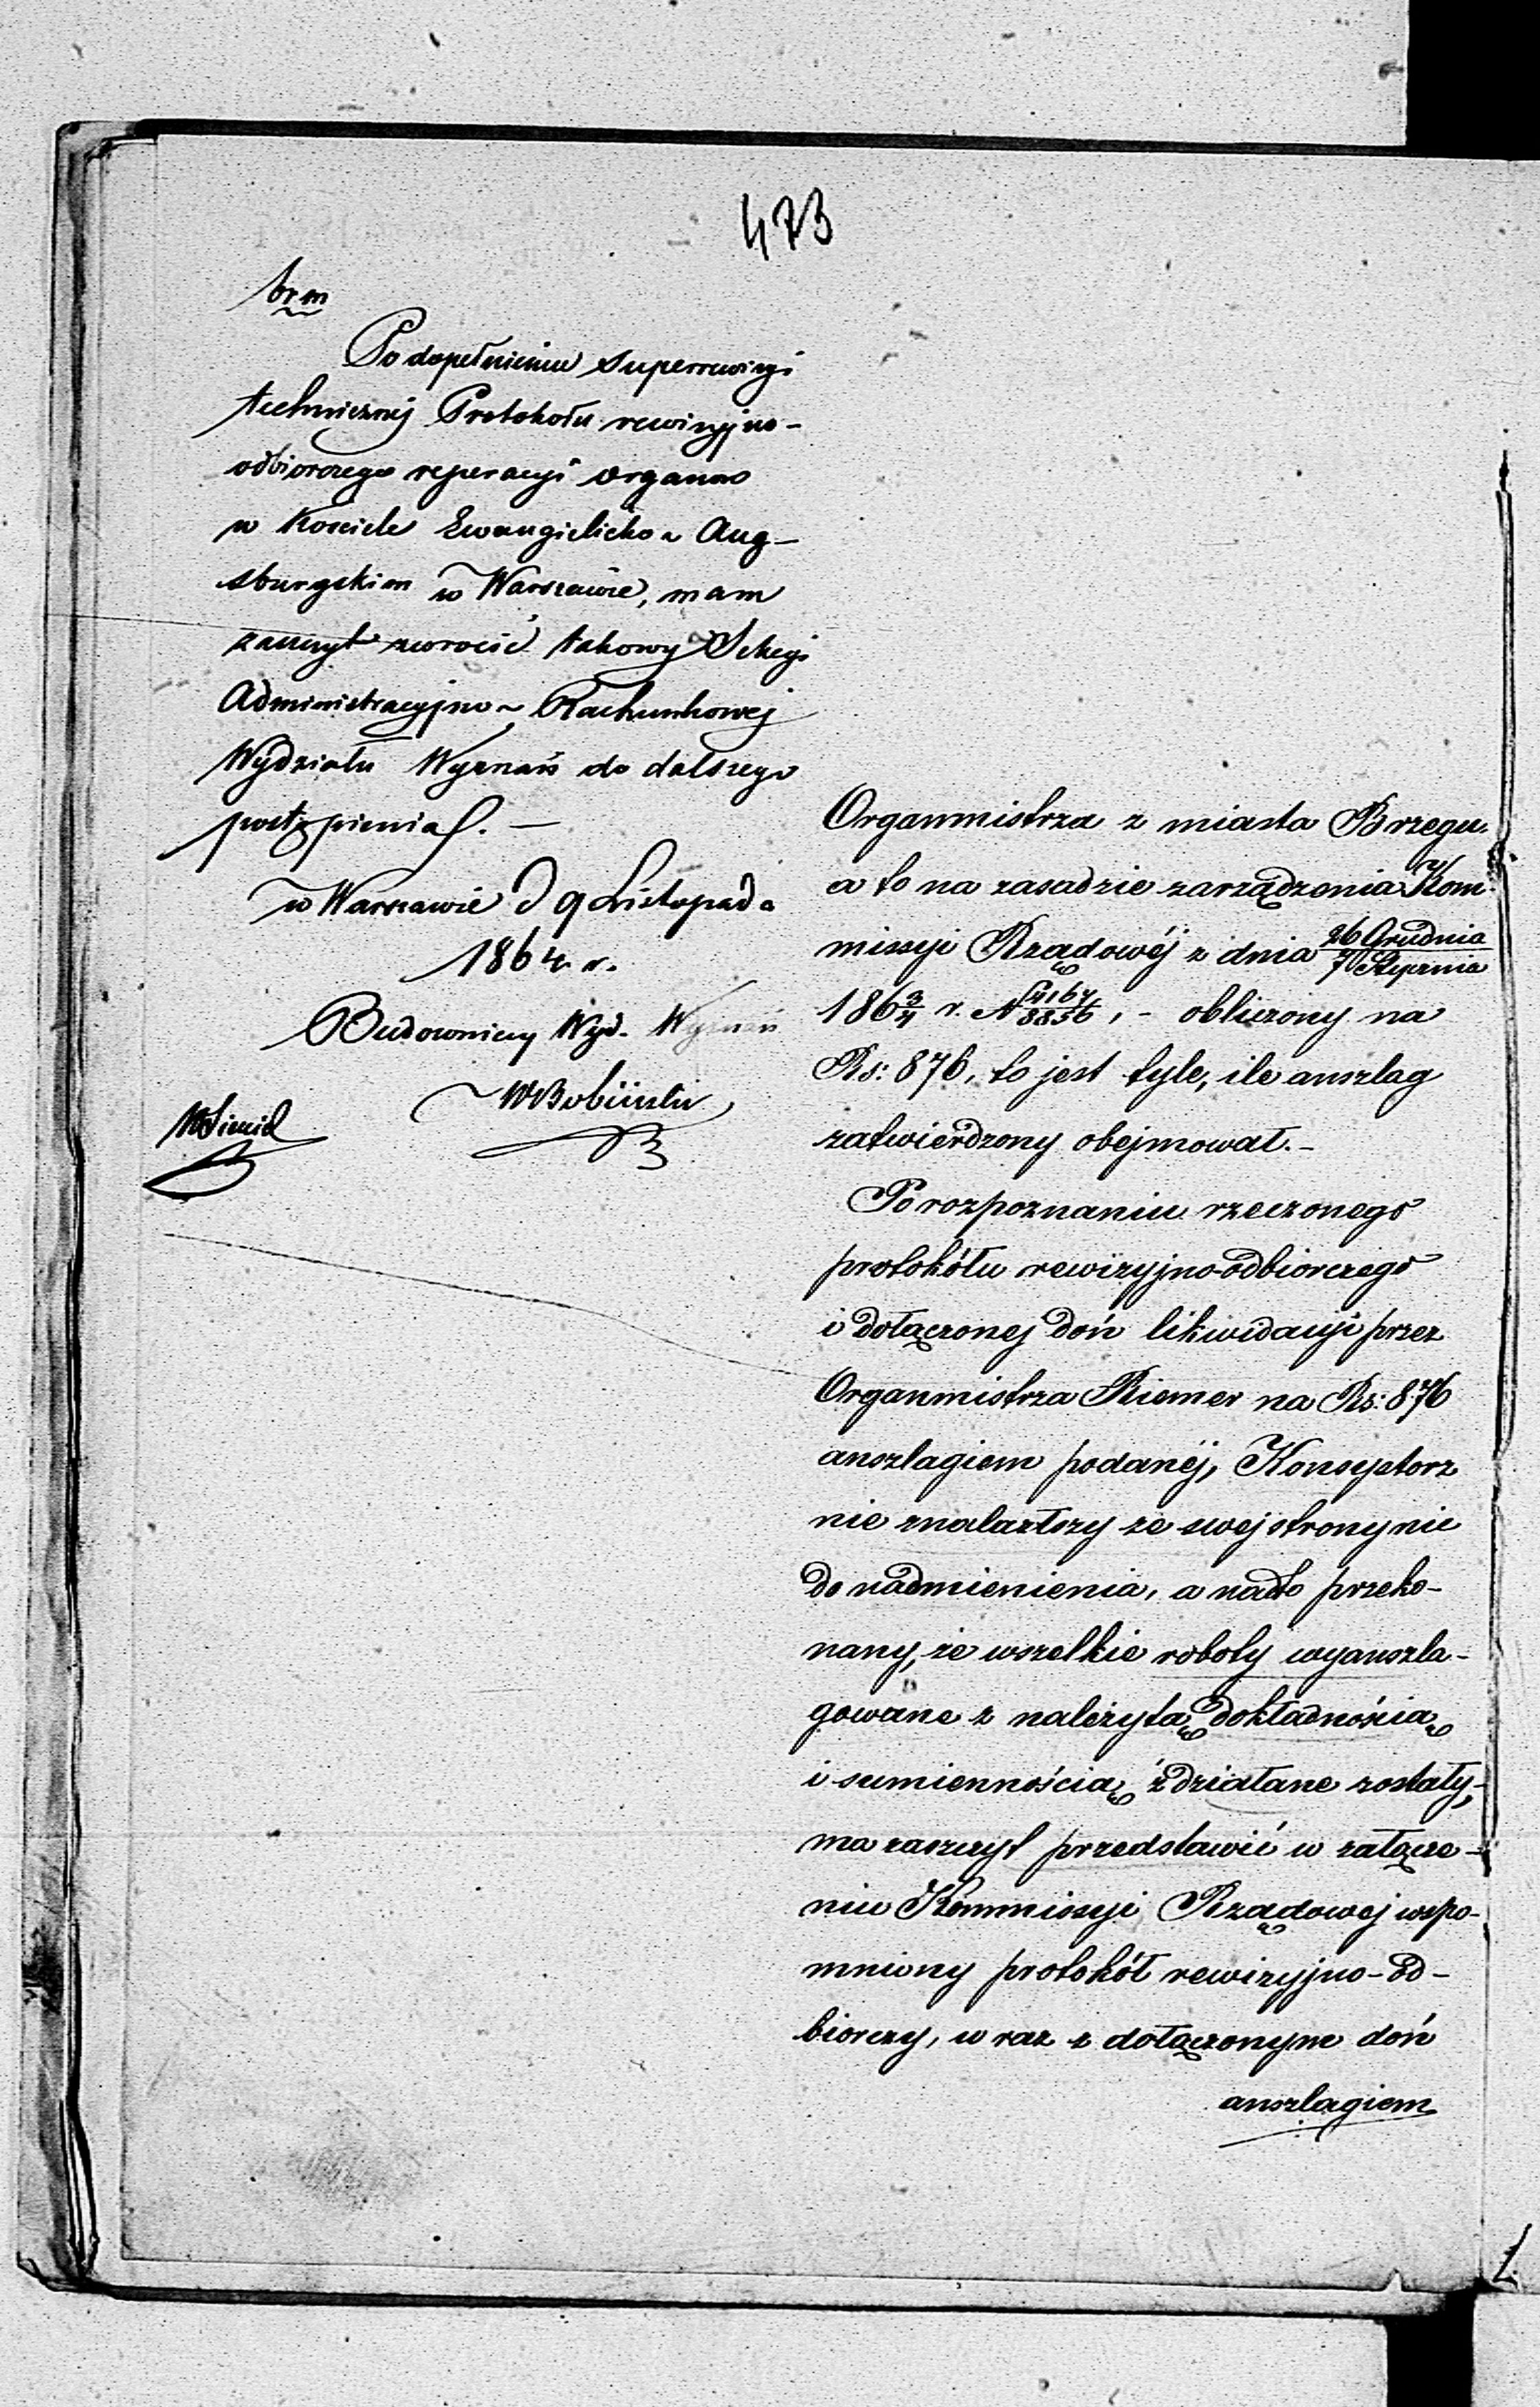 473
brm
Po dopełnieniu superrewizyi
technicznej Protokołu rewizyjno-
odbiorczego reperacyi organów
w Kościele Ewangielicko-Aug-
sburgskim w Warszawie, mam
zaszczyt zwrócić takowy Sekcyi
Administracyjno-Rachunkowej
Wydziału Wyznań do dalszego
postąpienia. —
w Warszawie d 9 Listopada
1864 r.
Budowniczy Wyd. Wyznań
Organmistrza z miasta Brzegu,
a to na zasadzie zarządzenia Kom-
missyi Rządowéj z dnia 26 Grudnia/7 Stycznia
186 3/4 r. N 4167/8856, - obliczony na
Rs: 876, to jest tyle, ile anszlag
zatwierdzony obejmował. -
Po rozpoznaniu rzeczonego
protokółu rewizyjno-odbiorczego
i dołączonej doń likwidacyi przez
Organmistrza Riemer na Rs: 876
anszlagiem podanéj, Konsystorz
nie znalazłszy ze swej strony nic
do nadmienienia, a nadto przeko-
nany, że wszelkie roboty wyanszla-
gowane z należytą dokładnością
i sumiennością zdziałane zostały,
ma zaszczyt przedstawić w załącze-
niu Kommissyi Rządowej wspo-
mniony protokół rewizyjno-od-
biorczy, w raz z dołączonym doń
anszlagiem